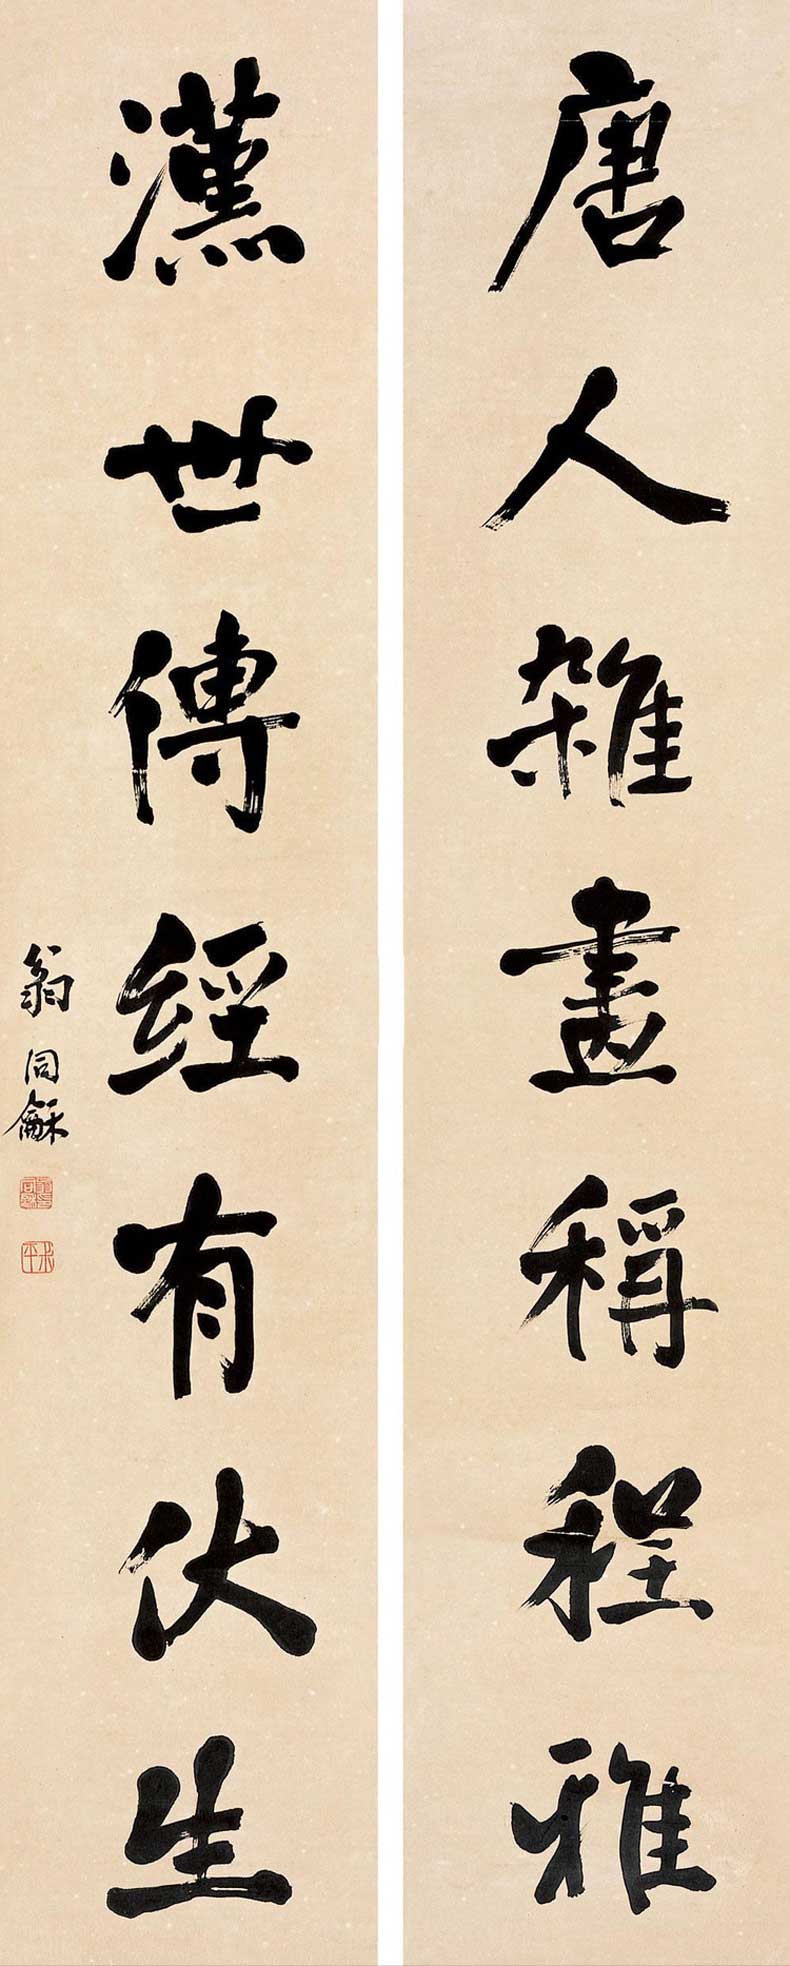 唐人雜畫稱程雅
漢世傳經有伏生
翁同龢